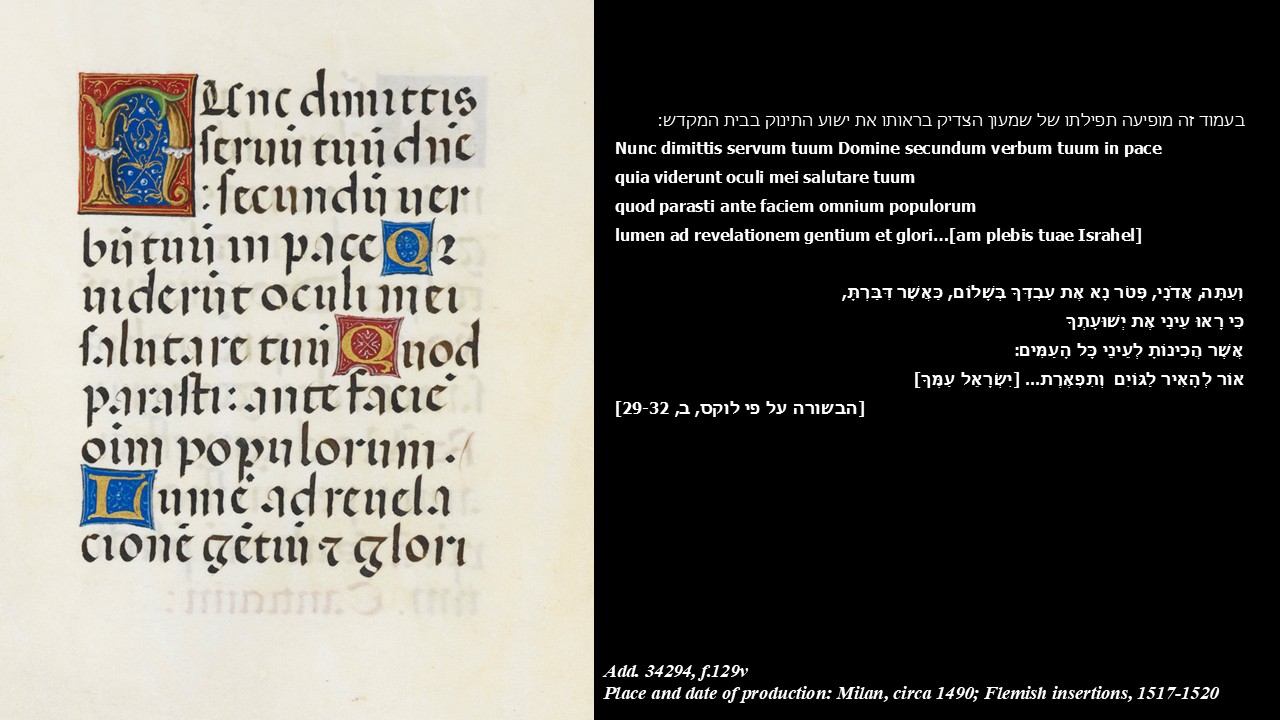 Nunc dimittis
servū tuū dne
: secundū ver
bū tuū in pace Q2
viderūt oculi mei
salutare tuū Quod
parasti: ante facie
oim populorum.
Lumē ad revela
cionē gētiū ⁊ glori
בעמוד זה מופיעה תפילתו של שמעון הצדיק בראותו את ישוע התינוק בבית המקדש:
Nunc dimittis servum tuum Domine secundum verbum tuum in pace
quia viderunt oculi mei salutare tuum
quod parasti ante faciem omnium populorum
lumen ad revelationem gentium et glori...[am plebis tuae Israhel]
וְעַתָּה, אֲדֹנָי, פְּטֹר נָא אֶת עַבְדְּךָ בְּשָׁלוֹם, כַּאֲשֶׁר דִּבַּרְתָּ,
כִּי רָאוּ עֵינַי אֶת יְשׁוּעָתְךָ
אֲשֶׁר הֲכִינוֹתָ לְעֵינֵי כָּל הָעַמִּים:
אוֹר לְהָאִיר לַגּוֹיִם וְתִפְאֶרֶת... [יִשְׂרָאֵל עַמְּךָ]
[הבשורה על פי לוקס, ב, 29-32]
Add. 34294, f.129v
Place and date of production: Milan, circa 1490; Flemish insertions, 1517-1520